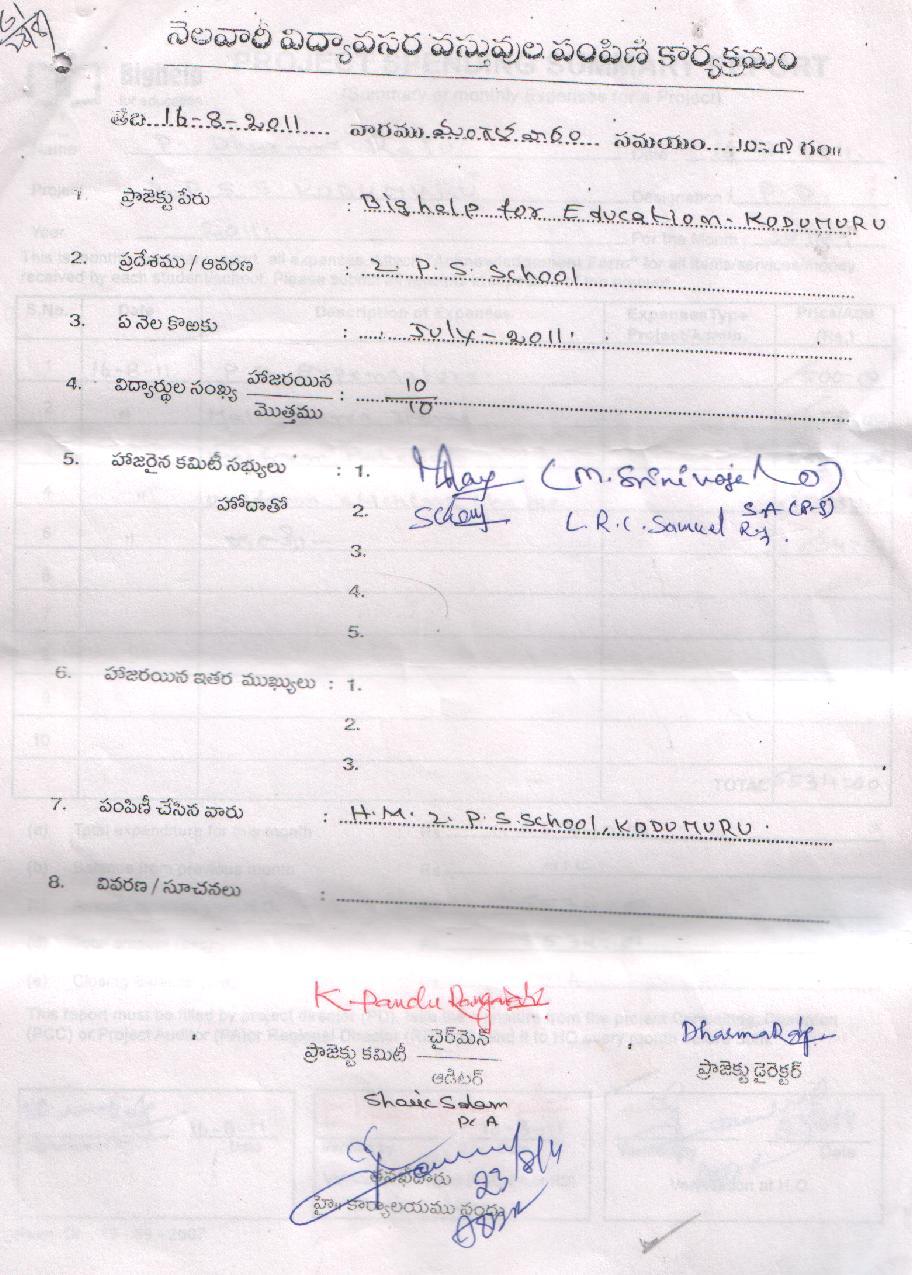 నెలవారీ విద్యావసర వస్తువుల పంపిణీ కార్యక్రమం
తేది 16-8-2011 వారము మంగళవారం సమయం 10-00 గం॥
1. ప్రాజెక్టు పేరు : Bighelp for Education. KODUMURU
2. ప్రదేశము / ఆవరణ : Z. P. S. School
3. ఏ నెల కొఱకు : July - 2011.
4. విద్యార్థుల సంఖ్య హాజరయిన / మొత్తము : 10 / 10
5. హాజరైన కమిటీ సభ్యులు : 1. (M. Srinivasa
హోదాతో 2. L.R.C. Samuel S.A (P.S)
3.
4.
5.
6. హాజరయిన ఇతర ముఖ్యులు : 1.
2.
3.
7. పంపిణీ చేసిన వారు : H.M. Z. P. S School, KODUMURU.
8. వివరణ / సూచనలు :
K. Pandu Rangaiah
DharmaRaj
ప్రాజెక్టు కమిటీ చైర్‌మెన్ / ఆడిటర్
ప్రాజెక్టు డైరెక్టర్
Salam
PCA
23/8/11
హై కార్యాలయము నందు